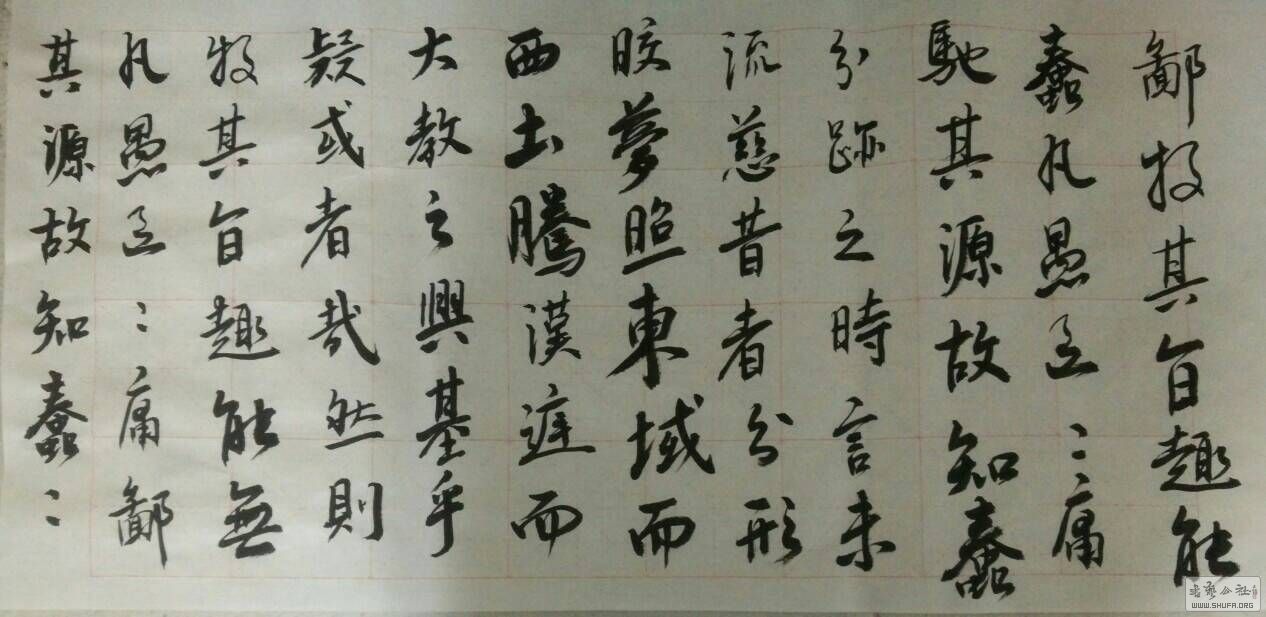 鄙投其旨趣能
蠢凡愚區〻庸
馳其源故知蠢
分跡之時言未
流慈昔者分形
晈夢照東域而
西土騰漢庭而
大教之興基乎
疑或者哉然則
投其旨趣能無
凡愚區〻庸鄙
其源故知蠢〻
书艺公社
WWW.SHUFA.ORG